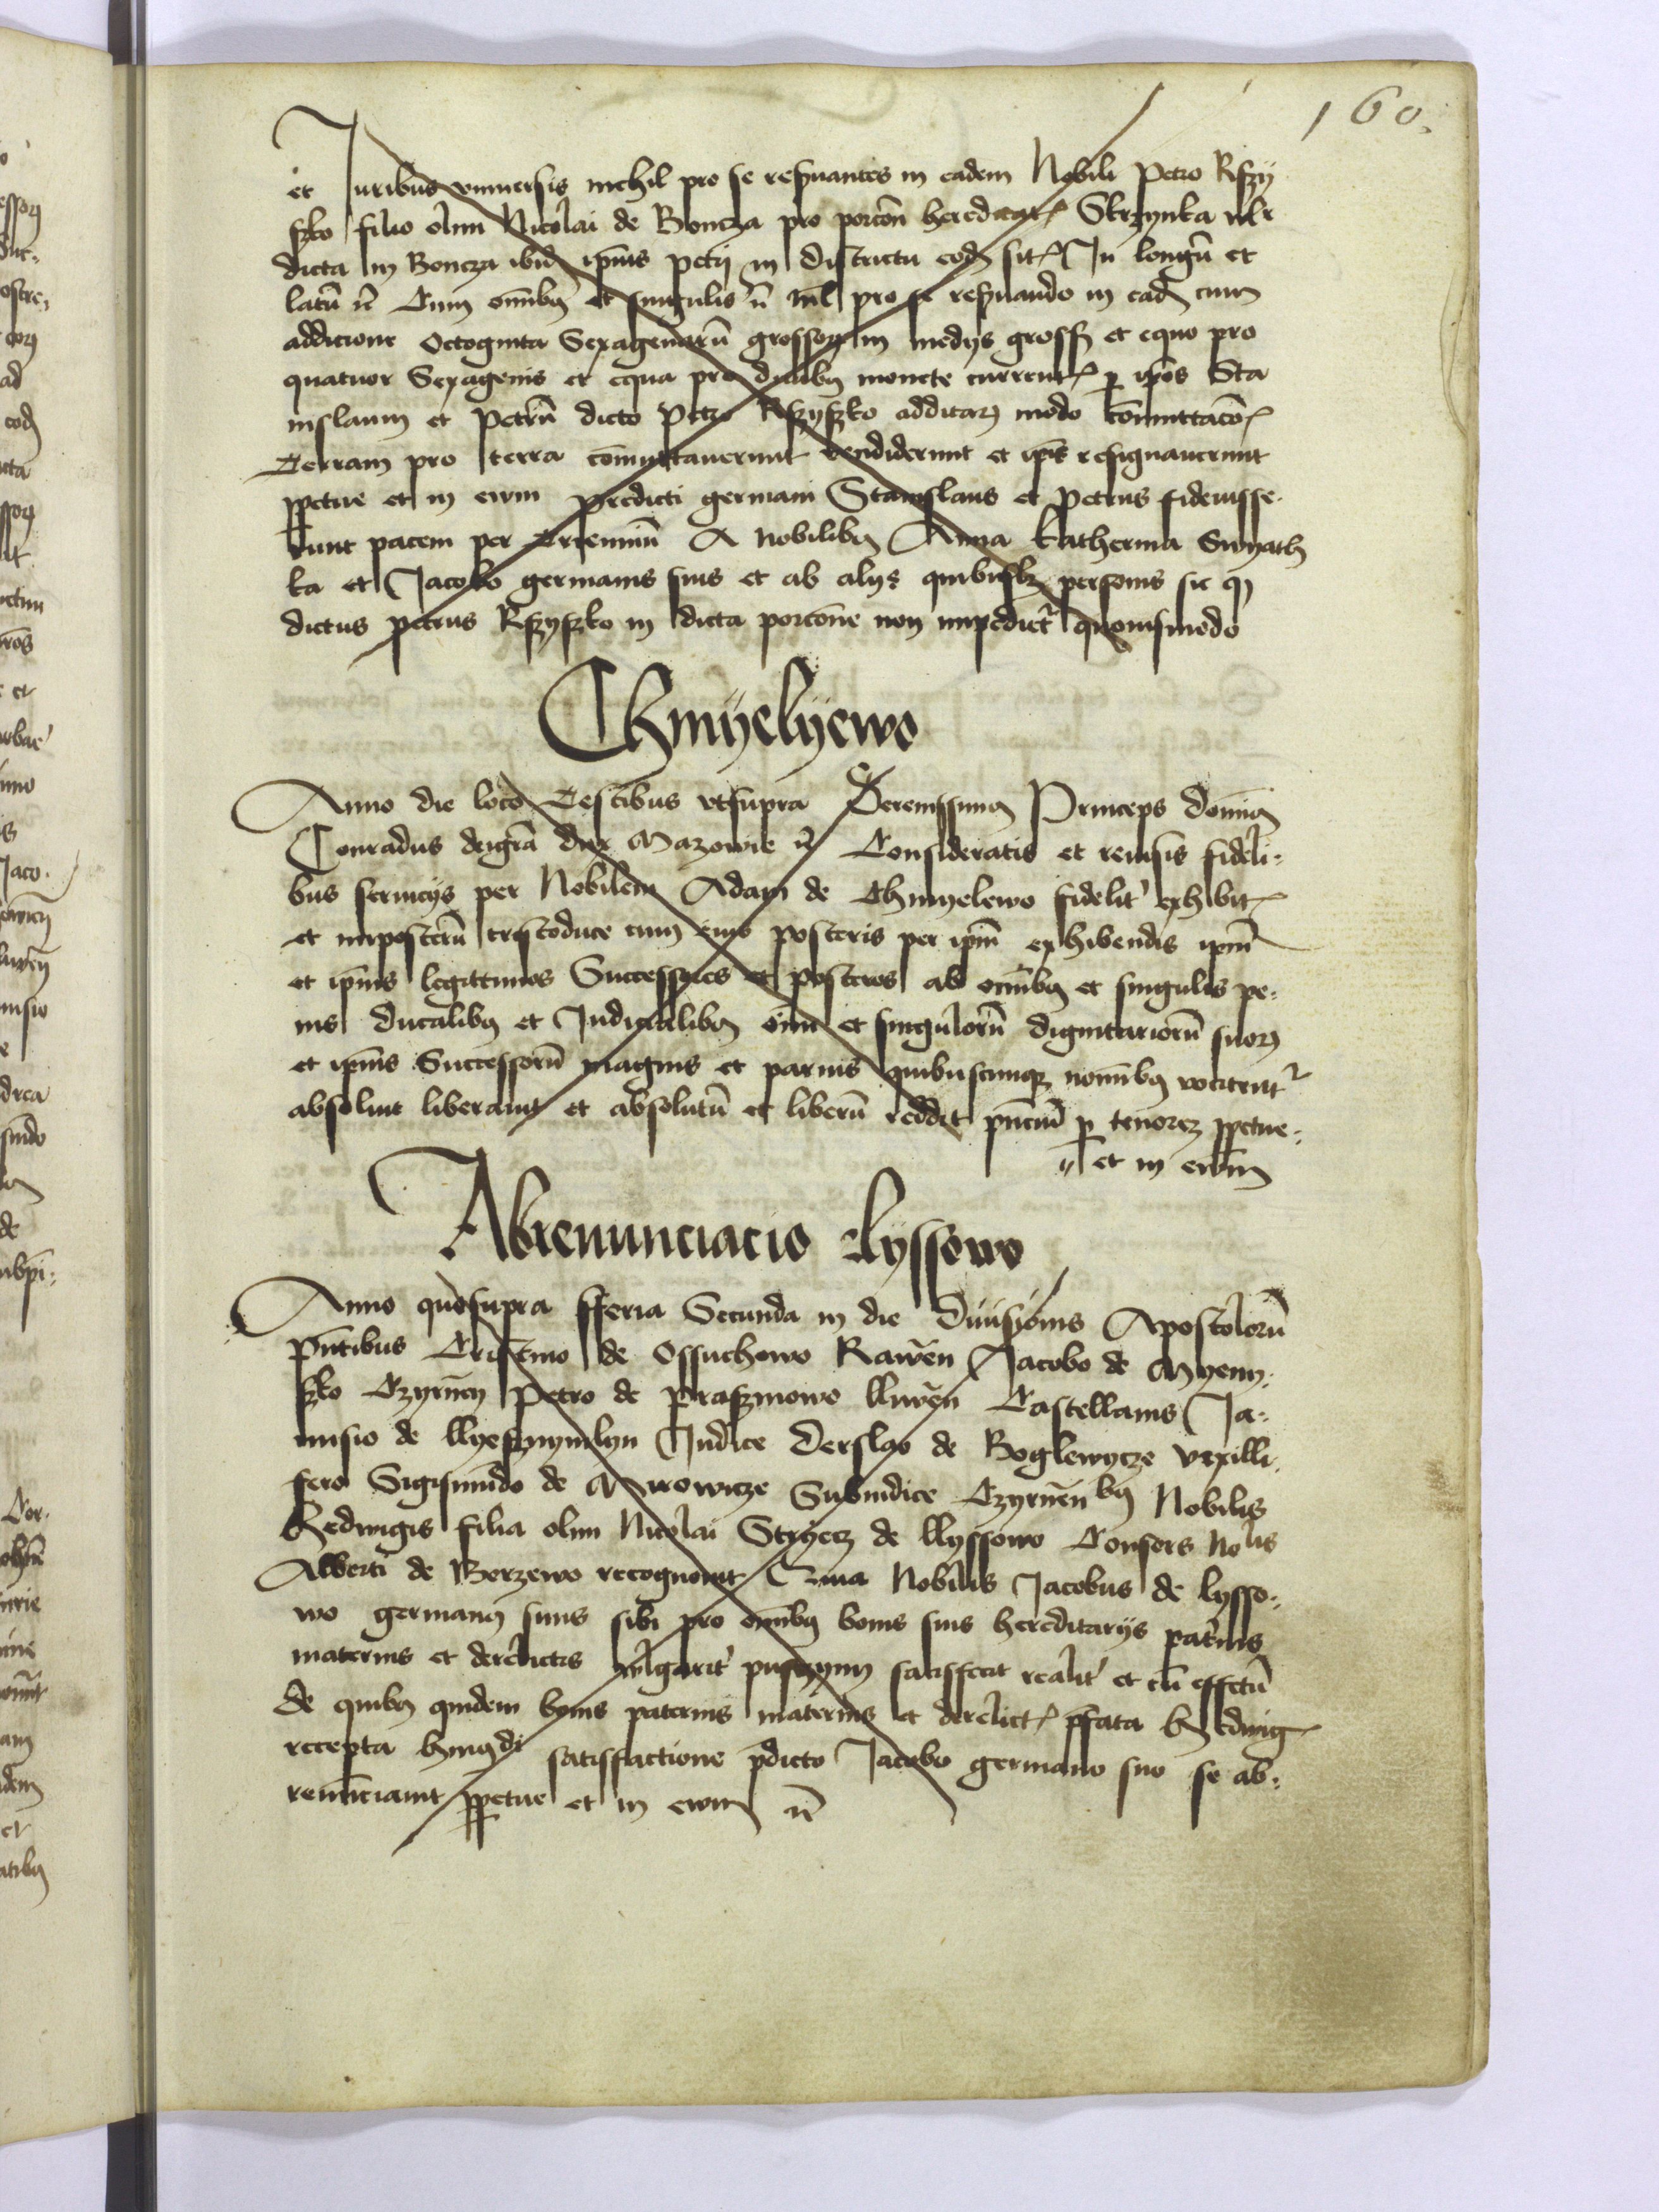 160.
et Juribus vniuersis nichil pro se reservantes in eadem Nobili Petro Rszy
szko filio olim Nicolai de Boncza pro porcōn hereditat. Skrzynka vlr
dicta in Boncza ibid ipīus petri in districtu eod sit. In longū et
latū rc Cum omībus et singulis rc nil pro se reservando in ead cum
addicione Octoginta Sexagenarū grossorum in medys gross et equo pro
quatuor Sexagenis et equa pro duabus monete current. p ip̄os Sta
nislaum et Petrū dicto Petro Rszyszko additarum modo cōmittacōe
Terram pro terra cōmittauerunt vendiderunt et ip̄is resignauerunt
ppetue et in ewm predicti germani Stanislaus et Petrus fideiusse
runt pacem per trienniū A nobilibus Anna Katherina Swyath
ka et Jacobo germanis suis et ab alys quibuslz personis sic q
dictus petrus Rszyszko in dicta porcōne non impediet quouismodo
Chmyelyewo
Anno die loco Testibus vtsupra Serenissimus Princeps Dominus
Conradus deigrā dux Mazowie rc Consideratis et reuisis fideli-
bus seruicys per Nobilem Adam de Chmyelewo fidelit exhibit.
et inposterū tristoduce cum eius posteris per ipm exhibendis ipm
et ipīus legittimos Successores et posteros ab omībus et singulis pe-
nis Ducalibus et Judicialibus oīm et singulorū dignitariorū suorum
et ipīus Successorū magnis et paruis quibuscunque nomībus vocitent
absoluit liberauit et absolutū et liberū reddit pn̄ciū p tenorez ppetue-
et in ewm
Abrenunciacio Lyssowo
Anno quosupra fferia Secunda in die Diuisionis Apostolorū
Pn̄tibus Cristino de Ossuchowo Rawēn Jacobo de Myeny-
szko Czyrnēn Petro de Praszmowo llywēn Castellanis Ja-
nusio de llyesznymlyn Judice Derslao de Boglewycze vexilli
fero Sigismūdo de Mrowicze Subiudice Czyrnēnbus Nobilis
Hedwigis filia olim Nicolai Stryecz de llyssowo Consors nolis
Alberti de Borzewo recognouit Quia Nobilis Jacobus de lysso-
wo germanus suus sibi pro omībus bonis suis hereditarys patnis
maternis et derelictis vlgarit puszczyny satisfecit realit et cū effectū
de quibus quidem bonis paternis maternis et derelict. pfata hedwig.
recepta hmōdi satisfactione pdicto Jacobo germano suo se ab-
renūciauit ppetue et in ewm rc